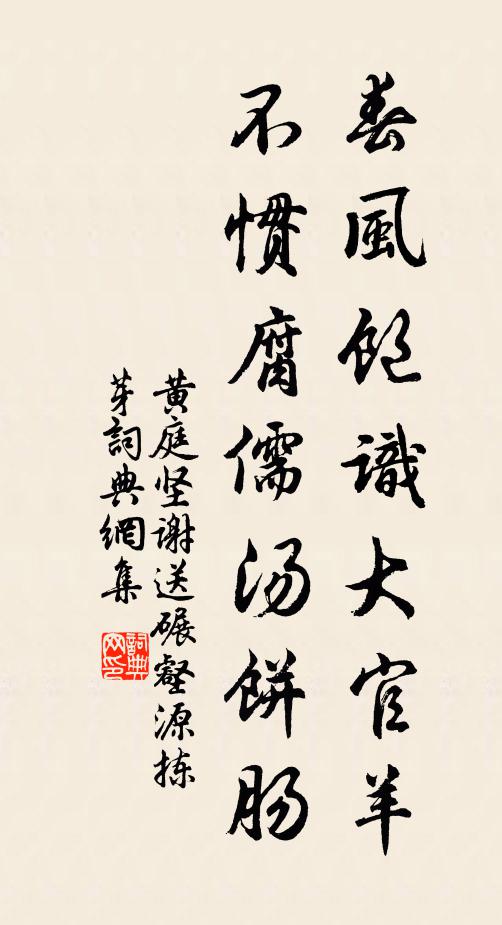 春風飽識大官羊
不慣腐儒汤餅肠
黄庭坚謝送碾壑源拣
芽詞典網集
詞典網印